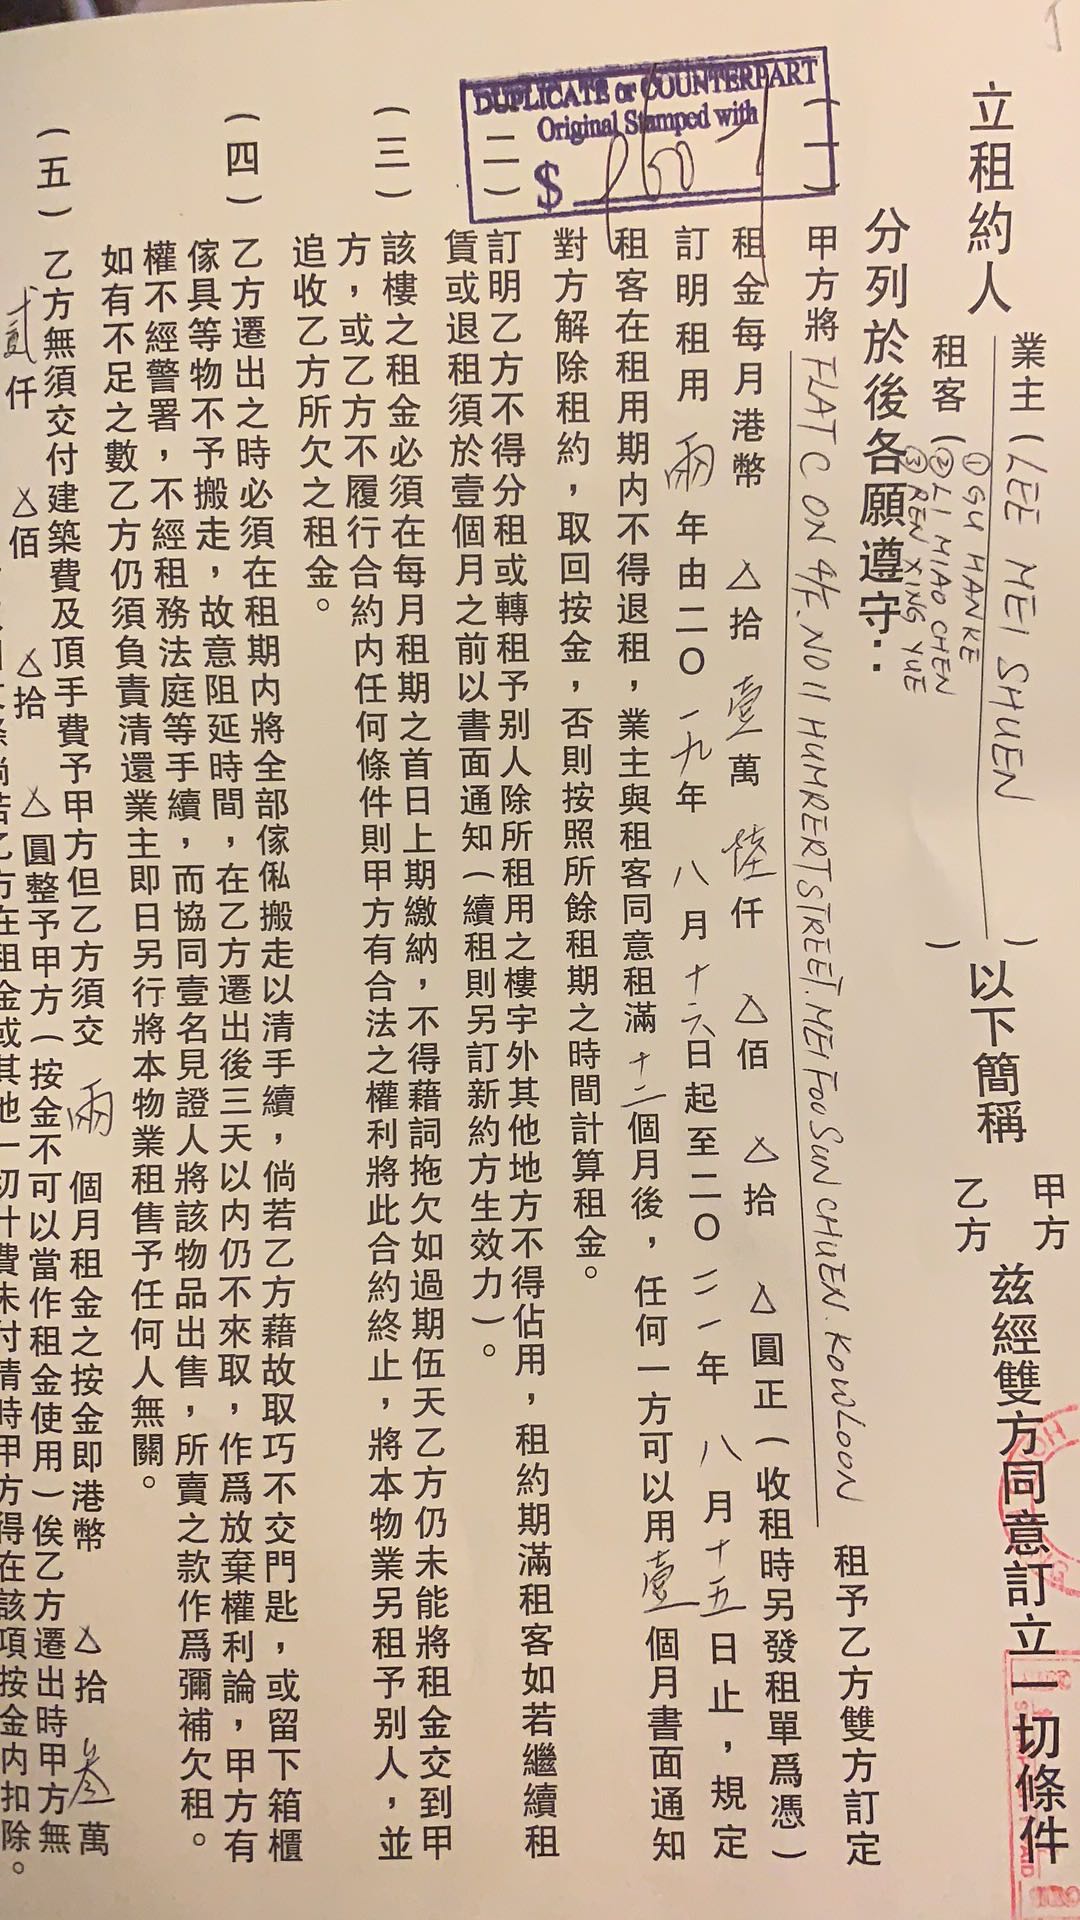 立租約人
業主（LEE MEI SHUEN）
租客（① GU HANKE
② LI MIAO CHEN
③ REN XING YUE）
以下簡稱
甲方
乙方
茲經雙方同意訂立一切條件
分列於後各願遵守：
（一）
甲方將FLAT C ON 4/F. NO 11 HUMPERT STREET. MEI FOO SUN CHUEN. KOWLOON 租予乙方雙方訂定
租金每月港幣 △拾 壹萬 陸仟 △佰 △拾 △圓正（收租時另發租單爲憑）
訂明租用 兩 年由二〇一九年 八月十六日起至二〇二一年 八月十五日止，規定
租客在租用期內不得退租，業主與租客同意租滿十二個月後，任何一方可以用壹個月書面通知
對方解除租約，取回按金，否則按照所餘租期之時間計算租金。
（二）
訂明乙方不得分租或轉租予别人除所租用之樓宇外其他地方不得佔用，租約期滿租客如若繼續租
賃或退租須於壹個月之前以書面通知（續租則另訂新約方生效力）。
（三）
該樓之租金必須在每月租期之首日上期繳納，不得藉詞拖欠如過期伍天乙方仍未能將租金交到甲
方，或乙方不履行合約内任何條件則甲方有合法之權利將此合約終止，將本物業另租予别人，並
追收乙方所欠之租金。
（四）
乙方遷出之時必須在租期内將全部傢俬搬走以清手續，倘若乙方藉故取巧不交門匙，或留下箱櫃
傢具等物不予搬走，故意阻延時間，在乙方遷出後三天以内仍不來取，作爲放棄權利論，甲方有
權不經警署，不經租務法庭等手續，而協同壹名見證人將該物品出售，所賣之款作爲彌補欠租。
如有不足之數乙方仍須負責清還業主即日另行將本物業租售予任何人無關。
（五）
乙方無須交付建築費及頂手費予甲方但乙方須交 兩 個月租金之按金即港幣 △拾 叁萬
貳仟 △佰 △拾 △圓整予甲方（按金不可以當作租金使用）俟乙方遷出時甲方無
倘若乙方在租金或其他一切什費未付清時甲方得在該項按金内扣除。
DUPLICATE or COUNTERPART
Original Stamped with
$